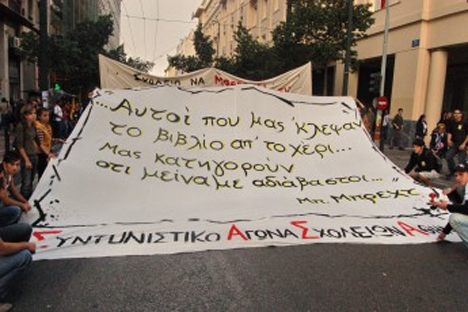 ΣΧΟΛΕΙΑ ΝΑ
...Αυτοί που μας 'κλεψαν
το βιβλίο απ' το χέρι...
μας κατηγορούν
οτι μείναμε αδιάβαστοι..."
Μπ. Μπρεχτ
ΣΥΝΤΟΝΙΣΤΙΚΟ ΑΓΩΝΑ ΣΧΟΛΕΙΩΝ